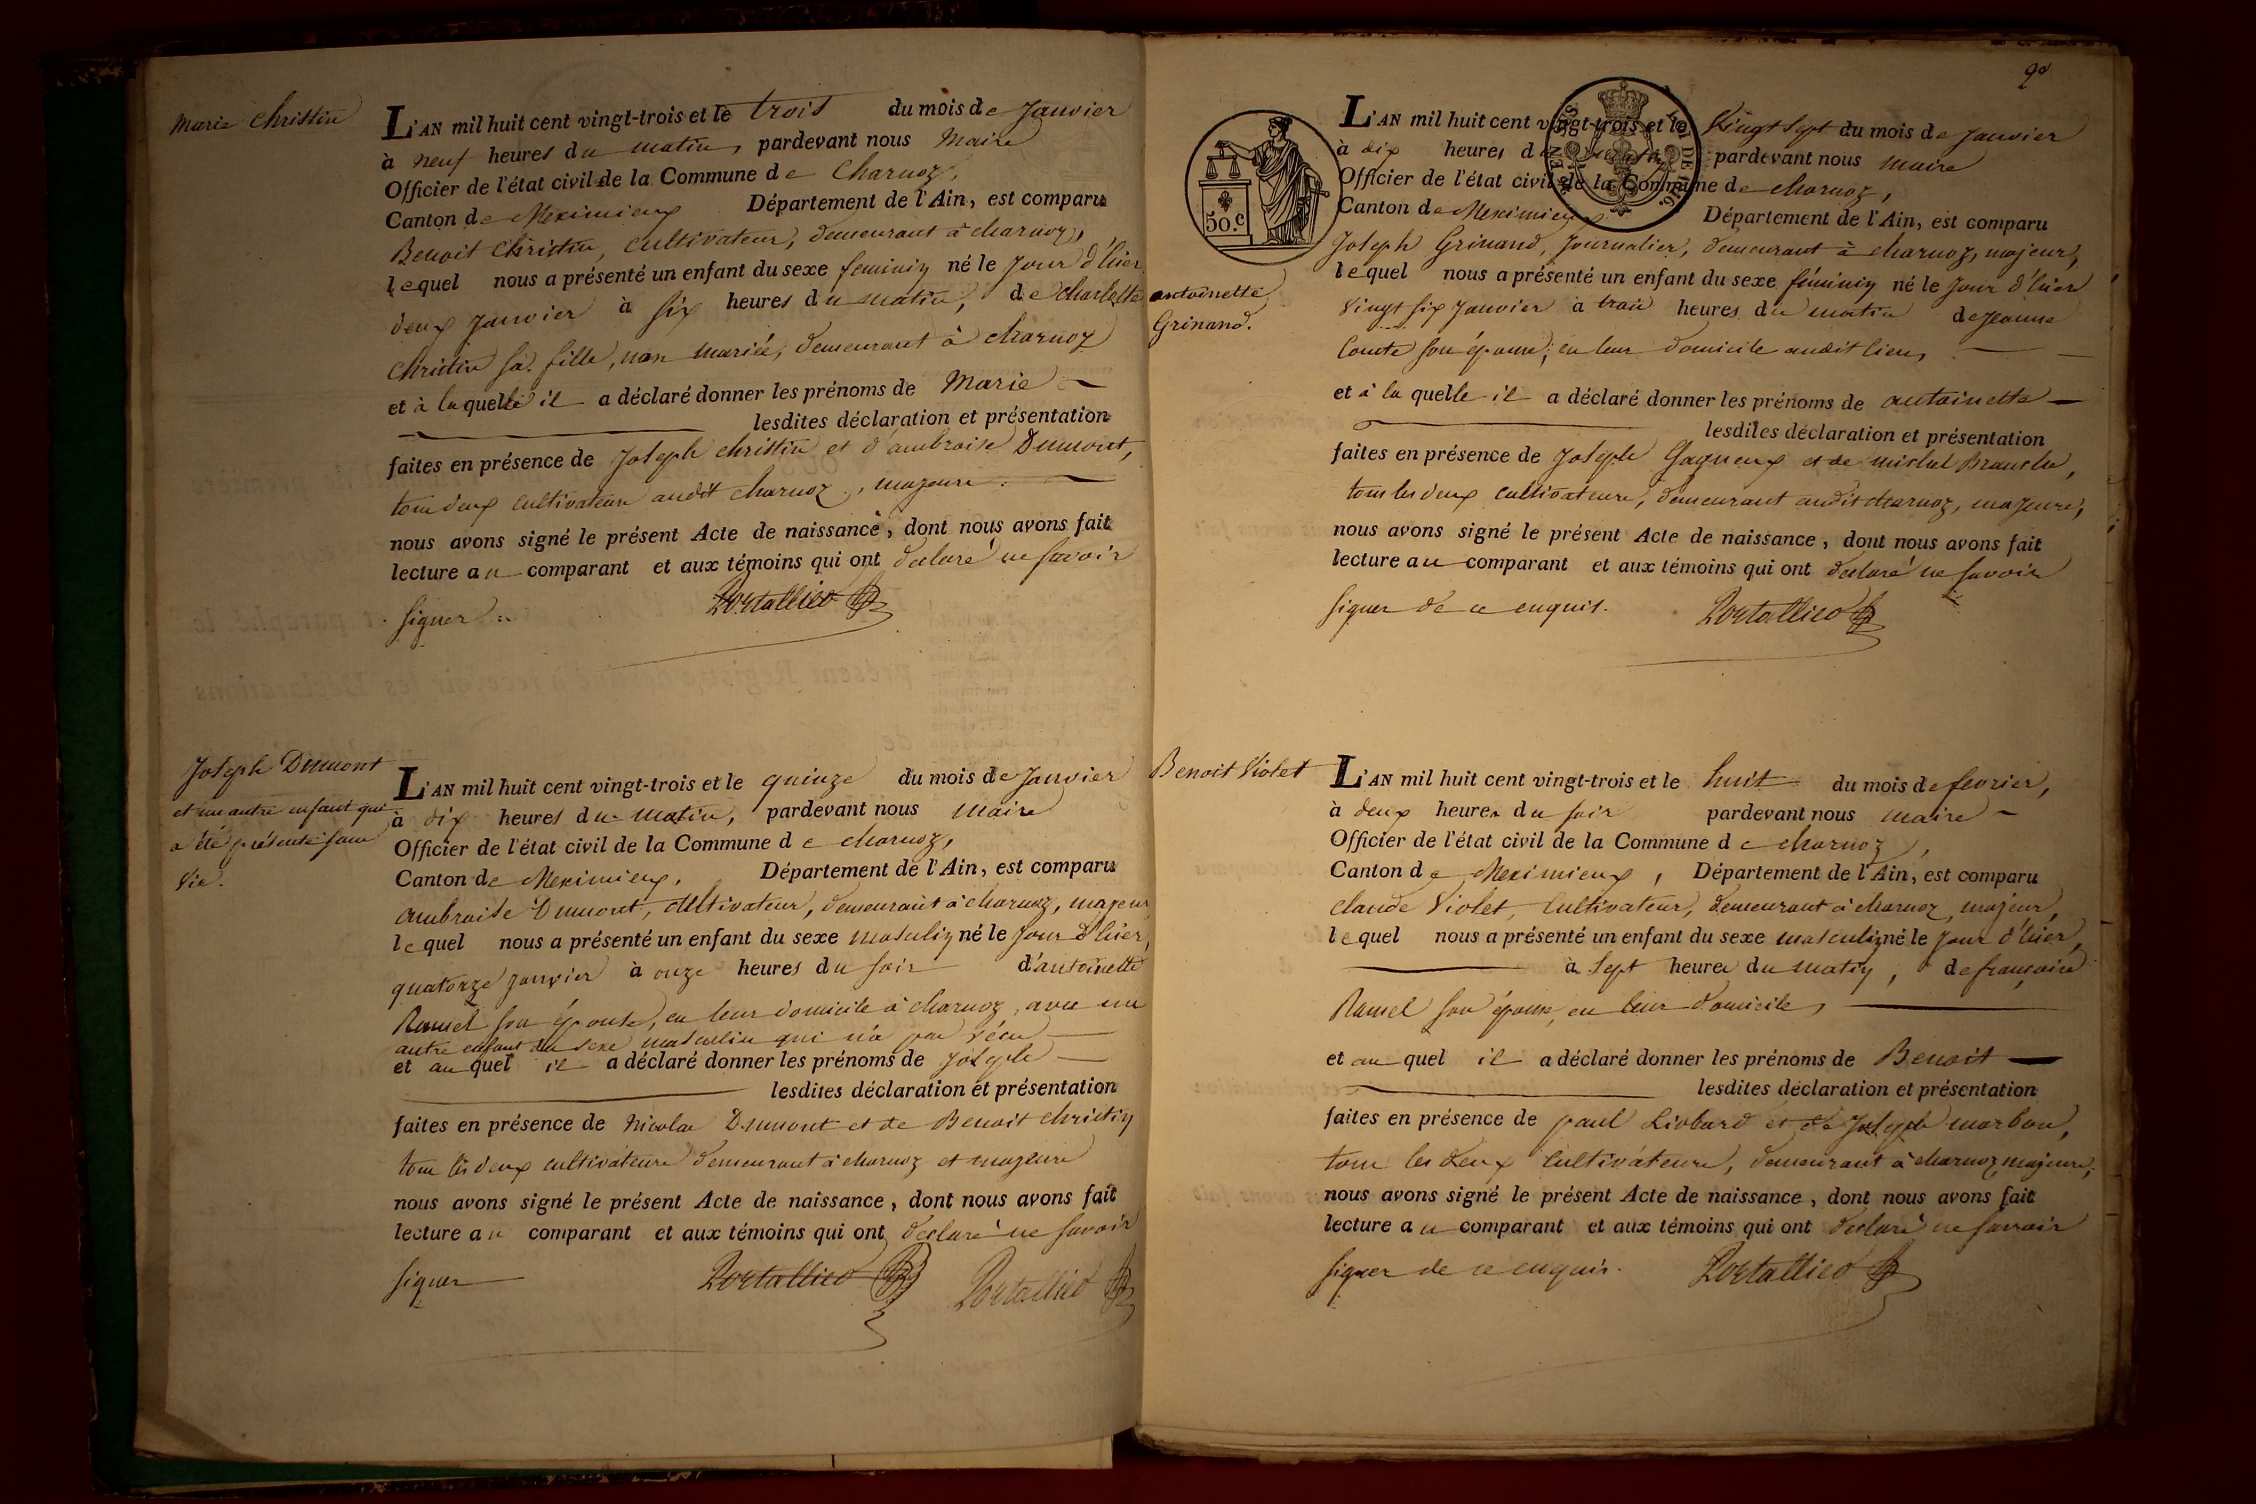 Marie Christin
L'AN mil huit cent vingt-trois et le trois du mois de Janvier
à neuf heures du matin, pardevant nous Maire
Officier de l'état civil de la Commune de Charnoz,
Canton de Meximieux Département de l'Ain, est comparu
Benoit Christin, cultivateur, demeurant à charnoz,
lequel nous a présenté un enfant du sexe feminin né le jour d'hier
deux janvier à six heures du matin, de charlotte
christin sa fille, non mariée, demeurant à charnoz
et à laquelle il a déclaré donner les prénoms de Marie
lesdites déclaration et présentation
faites en présence de Joseph christin et d'ambroise Dumont,
tous deux cultivateurs audit charnoz, majeurs
nous avons signé le présent Acte de naissance, dont nous avons fait
lecture au comparant et aux témoins qui ont declaré ne savoir
signer
Portallier
Joseph Dumont
et un autre enfant qui
a été présenté sans
vie.
L'AN mil huit cent vingt-trois et le quinze du mois de Janvier
à dix heures du matin, pardevant nous maire
Officier de l'état civil de la Commune de charnoz,
Canton de Meximieux, Département de l'Ain, est comparu
ambroise Dumont, cultivateur, demeurant à charnoz, majeur
lequel nous a présenté un enfant du sexe masculin né le jour d'hier,
quatorze janvier à onze heures du soir d'antoinette
Ramel son épouse, en leur domicile à charnoz, avec un
autre enfant du sexe masculin qui n'a pas vécu
et auquel il a déclaré donner les prénoms de joseph
lesdites déclaration et présentation
faites en présence de Nicolas Dumont et de Benoit christin
tous les deux cultivateurs demeurant à charnoz et majeurs
nous avons signé le présent Acte de naissance, dont nous avons fait
lecture au comparant et aux témoins qui ont declaré ne savoir
signer
Portallier Portallier
50.c
antoinette
Grinand.
L'AN mil huit cent vingt-trois et le Vingt sept du mois de janvier
à dix heures du matin pardevant nous maire
Officier de l'état civil de la Commune de charnoz,
Canton de Meximieux Département de l'Ain, est comparu
Joseph Grinand, journalier, demeurant à charnoz, majeur,
lequel nous a présenté un enfant du sexe féminin né le jour d'hier
vingt six janvier à trois heures du matin de jeanne
Comte son épouse, en leur domicile audit lieu,
et à la quelle il a déclaré donner les prénoms de antoinette
lesdites déclaration et présentation
faites en présence de Joseph Gagneux et de michel Branche,
tous les deux cultivateurs, demeurant audit charnoz, majeurs,
nous avons signé le présent Acte de naissance, dont nous avons fait
lecture au comparant et aux témoins qui ont declaré ne savoir
signer de ce enquis.
Portallier
Benoit Violet
L'AN mil huit cent vingt-trois et le huit du mois de fevrier,
à deux heures du soir pardevant nous maire
Officier de l'état civil de la Commune de charnoz,
Canton de Meximieux, Département de l'Ain, est comparu
claude Violet, Cultivateur, demeurant à charnoz, majeur,
lequel nous a présenté un enfant du sexe masculin né le jour d'hier,
à sept heures du matin, de françoise
Ramel son épouse, en leur domicile,
et au quel il a déclaré donner les prénoms de Benoit
lesdites déclaration et présentation
faites en présence de paul Liobard et de Joseph marbou,
tous les deux Cultivateurs, demeurant à charnoz, majeurs,
nous avons signé le présent Acte de naissance, dont nous avons fait
lecture au comparant et aux témoins qui ont declaré ne savoir
signer de ce enquis.
Portallier